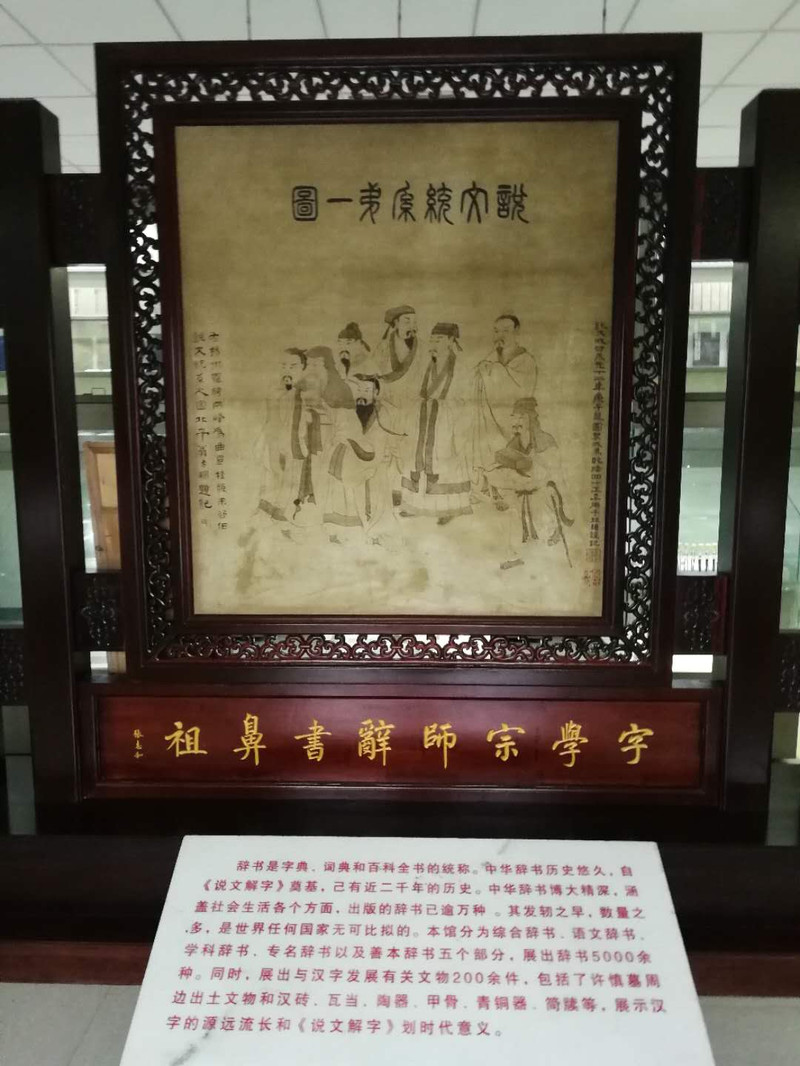 說文統系弟一圖
字學宗師辭書鼻祖
辞书是字典、词典和百科全书的统称。中华辞书历史悠久，自
《说文解字》奠基，己有近二千年的历史。中华辞书博大精深，涵
盖社会生活各个方面，出版的辞书已逾万种 。其发轫之早，数量之
多，是世界任何国家无可比拟的。本馆分为综合辞书、语文辞书、
学科辞书、专名辞书以及善本辞书五个部分，展出辞书5000余
种。同时，展出与汉字发展有关文物200余件，包括了许慎墓周
边出土文物和汉砖、瓦当、陶器、甲骨、青铜器、简牍等，展示汉
字的源远流长和《说文解字》划时代意义。